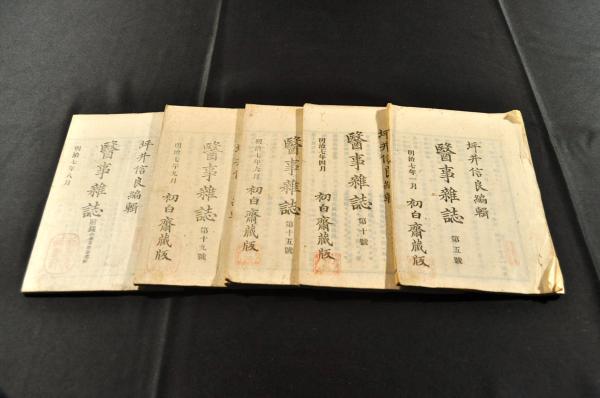 坪井信良編輯
醫事雜誌 第五號
明治七年一月 初白齋蔵版
坪井信良編輯
醫事雜誌 第十號
明治七年四月 初白齋蔵版
醫事雜誌 第十五號
明治七年六月 初白齋蔵版
醫事雜誌 第十九號
明治七年九月 初白齋蔵版
坪井信良編輯
醫事雜誌 附錄
明治七年八月